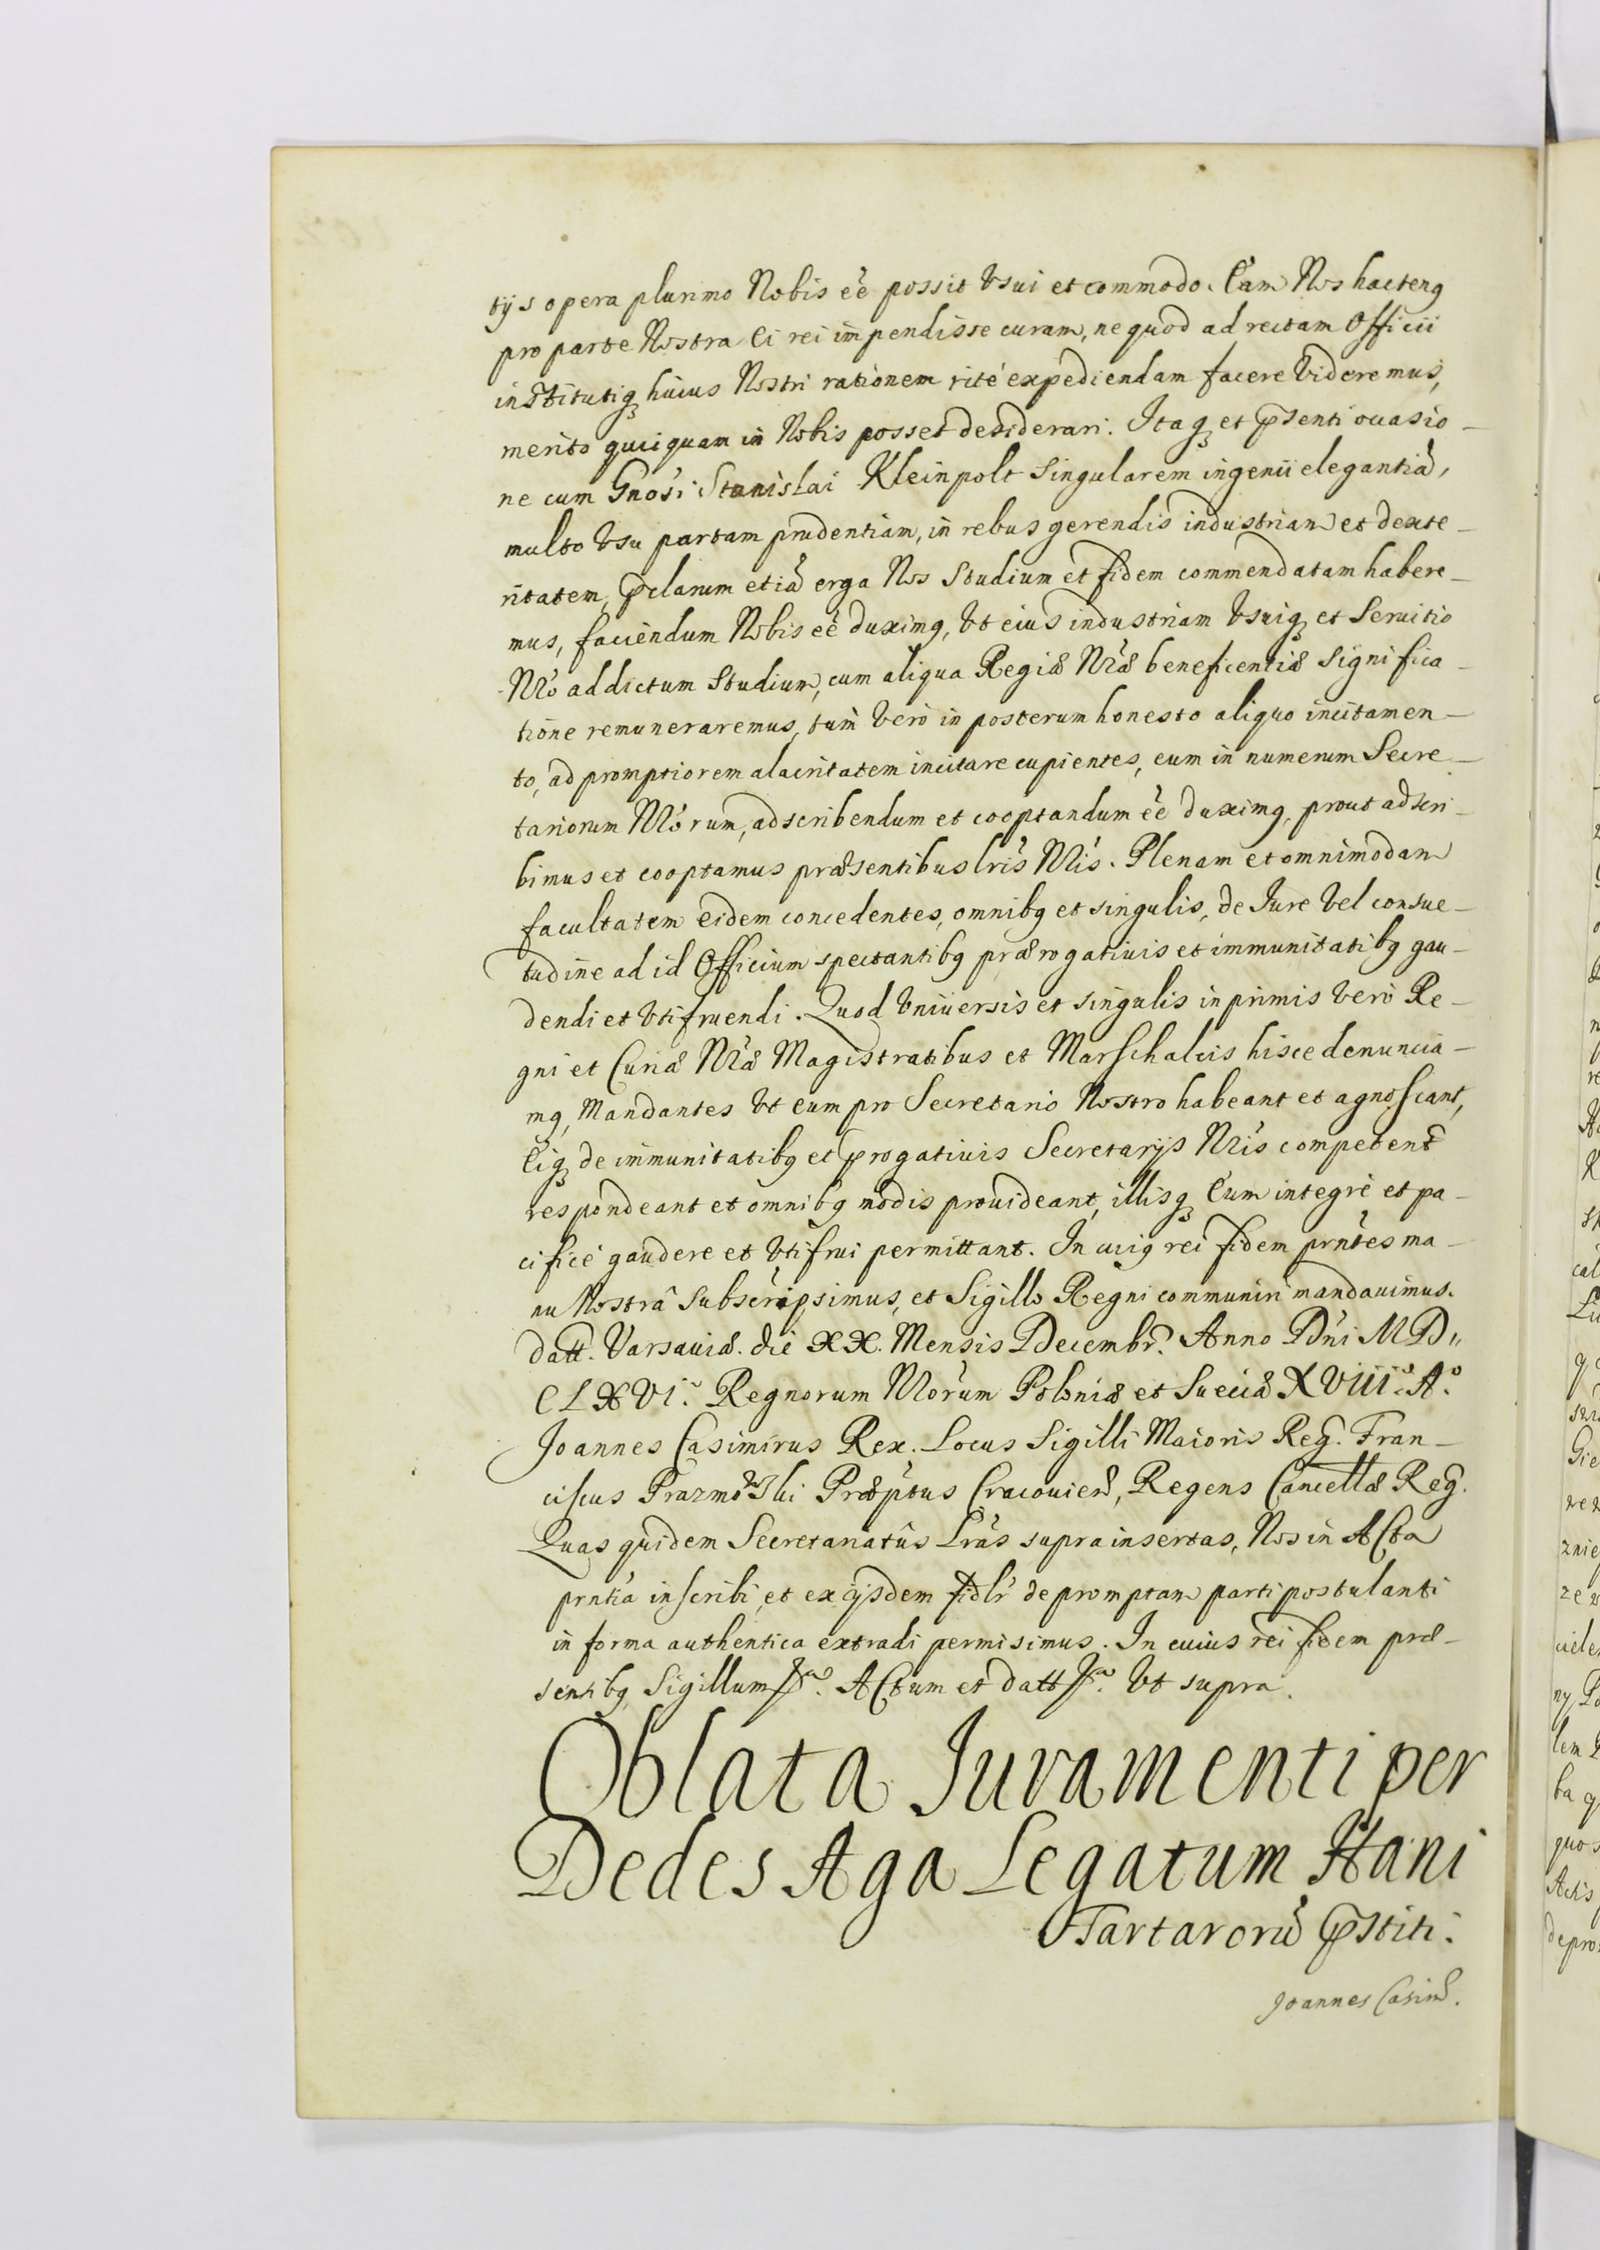 tijs opera plurimo Nobis eẽ possit Vsui et commodo. Eam Nos hactenꝰ
pro parte Nostra Ei rei impendisse curam, ne quod ad rectam Officii
institutiqꝫ huius Nostri rationem ritè expediendam facere Videremus,
merito quicquam in Nobis posset desiderari. Itaqꝫ et p̃senti occasio-
ne cum Gnosi Stanislai Kleinpolt Singularem ingenii elegantiã,
multo Vsu partam prudentiam, in rebus gerendis industriam et dexte-
ritatem, p̃clarum etiã erga Nos Studium et fidem commendatam habere-
mus, faciendum Nobis eẽ duximꝰ, Vt eius industriam Vsuiqꝫ et Seruitio
Nrõ addictum Studium, cum aliqua Regiæ Nræ beneficentiæ Significa-
tione remuneraremus, tum Verò in posterum honesto aliquo incitamen-
to, ad promptiorem alacritatem incitare cupientes, eum in numerum Secre-
tariorum Nrõrum, adscribendum et cooptandum eẽ duximꝰ, prout adscri-
bimus et cooptamus præsentibus lris̃ Nris̃. Plenam et omnimodam
facultatem eidem concedentes, omnibꝰ et singulis, de Iure Vel consue-
tudine ad id Officium spectantibꝰ prærogatiuis et immunitatibꝰ gau-
dendi et Vtifruendi. Quod Vniuersis et singulis inprimis Verò Re-
gni et Curiæ Nræ Magistratibus et Marschalcis hisce denuncia-
mꝰ, Mandantes Vt eum pro Secretario Nostro habeant et agnoscant,
Eiqꝫ de immunitatibꝰ et p̃rogatiuis Secretarijs Nris̃ competent̃
respondeant et omnibꝰ modis prouideant, illisqꝫ Eum integrè et pa-
cificè gaudere et Vtifrui permittant. In cuiꝰ rei fidem prñtes ma-
nu Nostrâ subscripsimus, et Sigillo Regni communiri mandauimus.
Datt. Varsauiæ. die XX. Mensis Decembr. Anno Dñi MD„
CLXVI. Regnorum Nrõrum Poloniæ et Sueciæ XVIII. Aº.
Joannes Casimirus Rex. Locus Sigilli Maioris Reg. Fran-
ciscus Prazmowski Præptus Cracouien̄, Regens Cancellæ Reg.
Quas quidem Secretariatûs Lrãs suprainsertas, Nos in ACta
prñtia inscribi, et ex ijsdem fidlr̃ depromptam parti postulanti
in forma authentica extradi permisimus. In cuius rei fidem præ-
sentibꝰ Sigillum &ca. ACtum et datt &ca. Vt supra.
Oblata Iuramenti per
Dedes Aga Legatum Hani
Tartarorũ p̃stiti.
Joannes Casim̃.